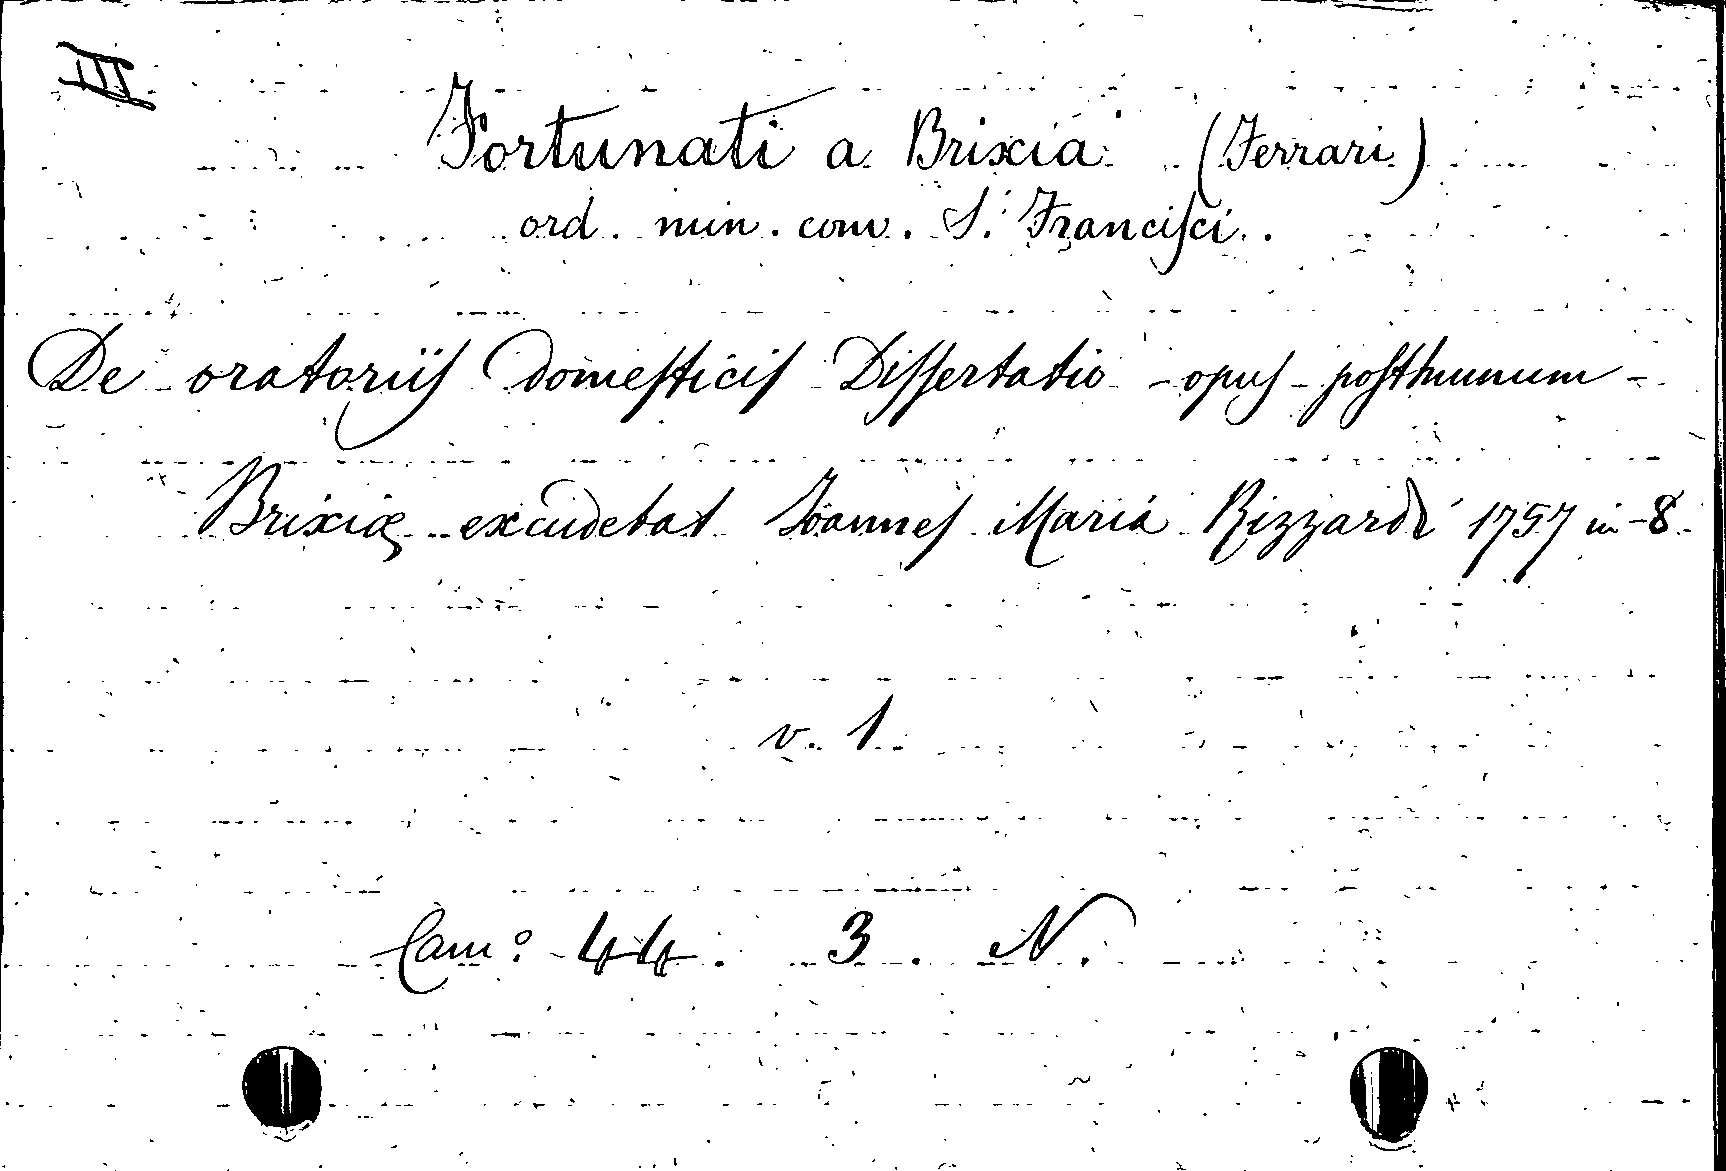 III
Fortunati a Brixia (Ferrari)
ord. min. conv. S. Francisci.
De oratoriis domesticis Dissertatio - opus posthumum -
Brixiæ excudebat Ioannes Maria Rizzardi 1757 in-8
v. 1
Cam: 44. 3. N.